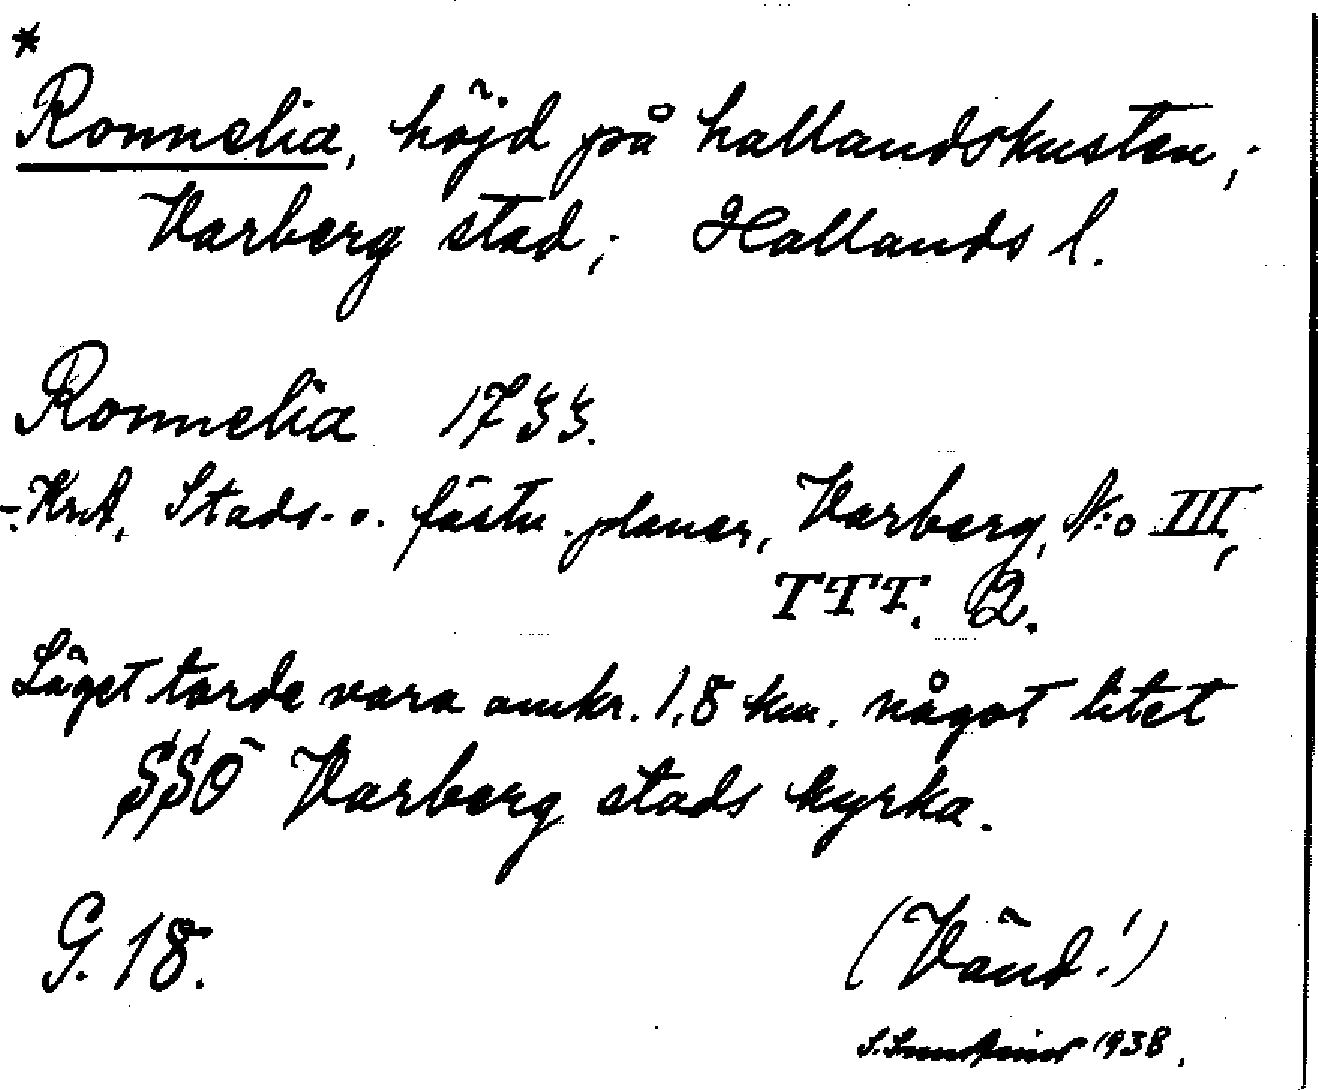 *
Ronnelia, höjd på hallandskusten;
Varberg stad; Hallands l.
Ronnelia 1733.
-: KrA, Stads- o. fästn. planer, Varberg, N:o III,
TTT. 2.
Läget torde vara omkr. 1,8 km. något litet
SSÖ Varberg stads kyrka.
G. 18.
(Vänd!)
S. 1938.